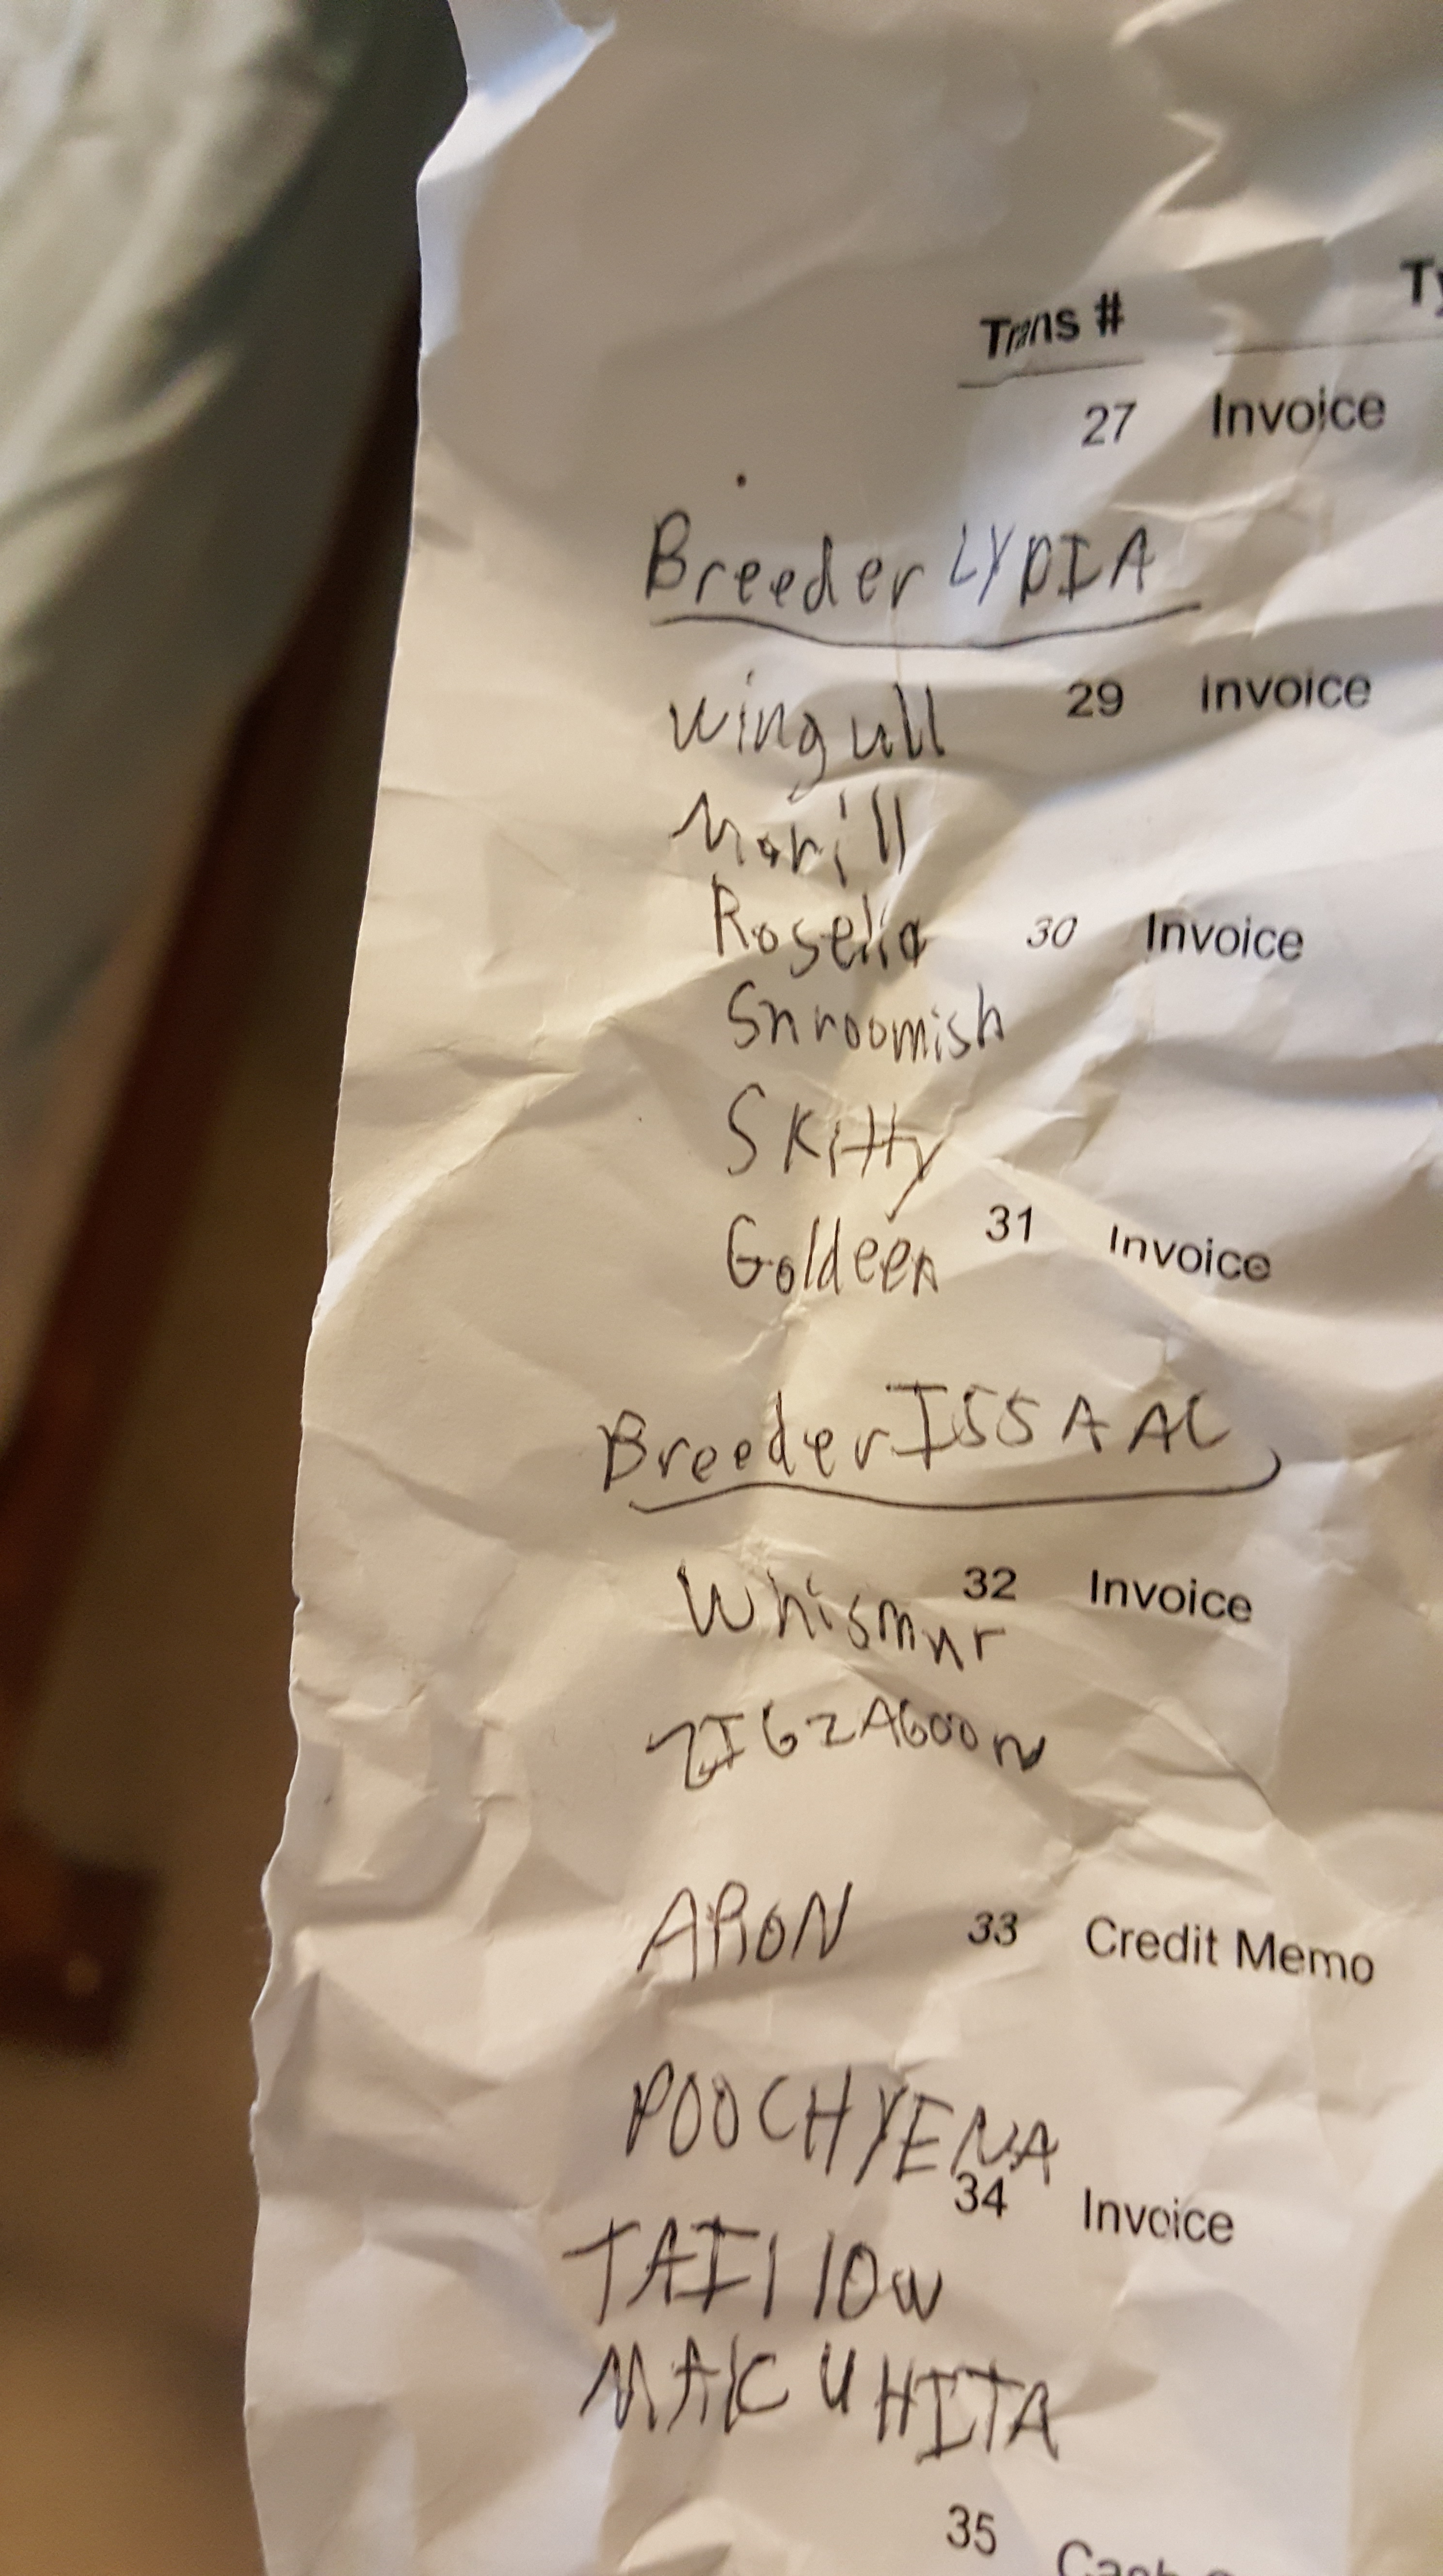 Ty
Trans #
27 Invoice
Breeder LYDIA
wingull 29 Invoice
Marill
Roselia 30 Invoice
Shroomish
Skitty
Goldeen 31 Invoice
Breeder ISSAAC
Whismur 32 Invoice
ZIGZAGOON
ARON 33 Credit Memo
POOCHYENA
34 Invoice
TAIllOw
MAKUHITA
35 Cash